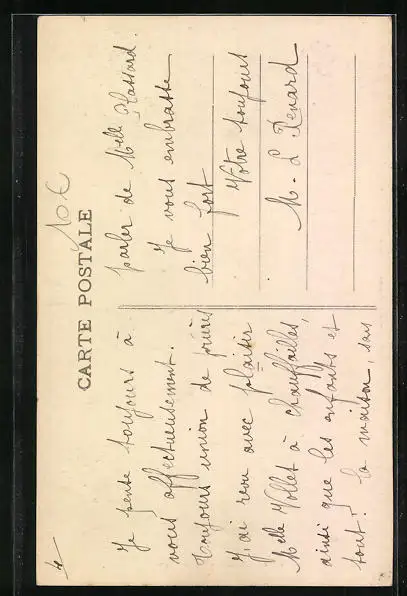 CARTE POSTALE
10€
Je pense toujours à
vous affectueusement.
Toujours union de prières
J'ai revu avec plaisir
Melle Vollet à Chauffailles,
ainsi que les enfants et
tout la maison, sans
parler de Melle Plassard.
Je vous embrasse
bien fort
Votre toujours
M. L Renard